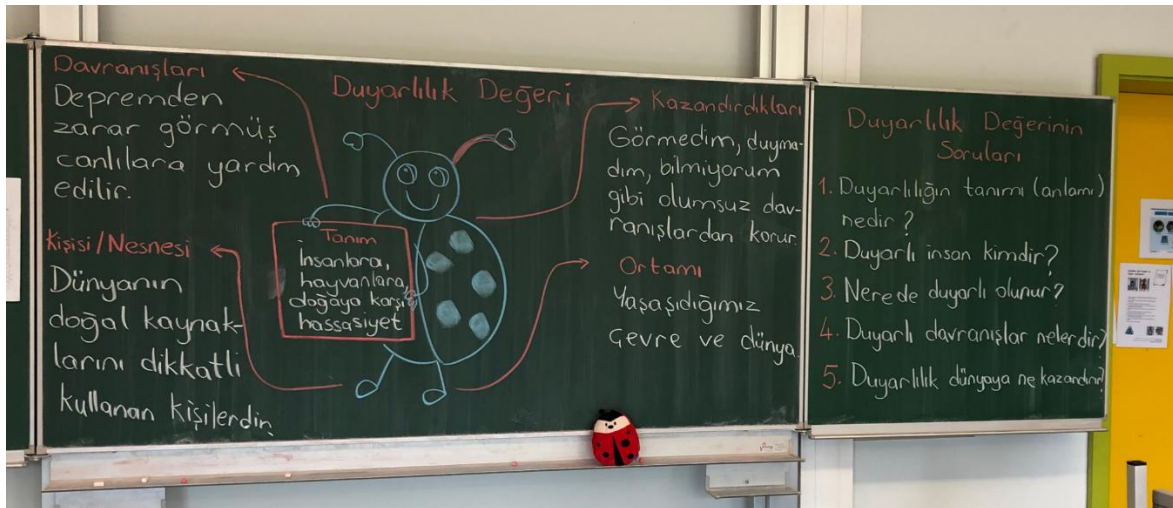 Duyarlılık Değeri
Davranışları
Depremden
zarar görmüş
canlılara yardım
edilir.
Kişisi/Nesnesi
Dünyanın
doğal kaynak-
larını dikkatli
kullanan kişilerdir.
Tanım
İnsanlara,
hayvanlara,
doğaya karşı
hassasiyet
Kazandırdıkları
Görmedim, duyma-
dım, bilmiyorum
gibi olumsuz dav-
ranışlardan korur.
Ortamı
Yaşaşıdığımız
çevre ve dünya.
Duyarlılık Değerinin
Soruları
1. Duyarlılığın tanımı (anlamı)
nedir?
2. Duyarlı insan kimdir?
3. Nerede duyarlı olunur?
4. Duyarlı davranışlar nelerdir?
5. Duyarlılık dünyaya ne kazandırır?